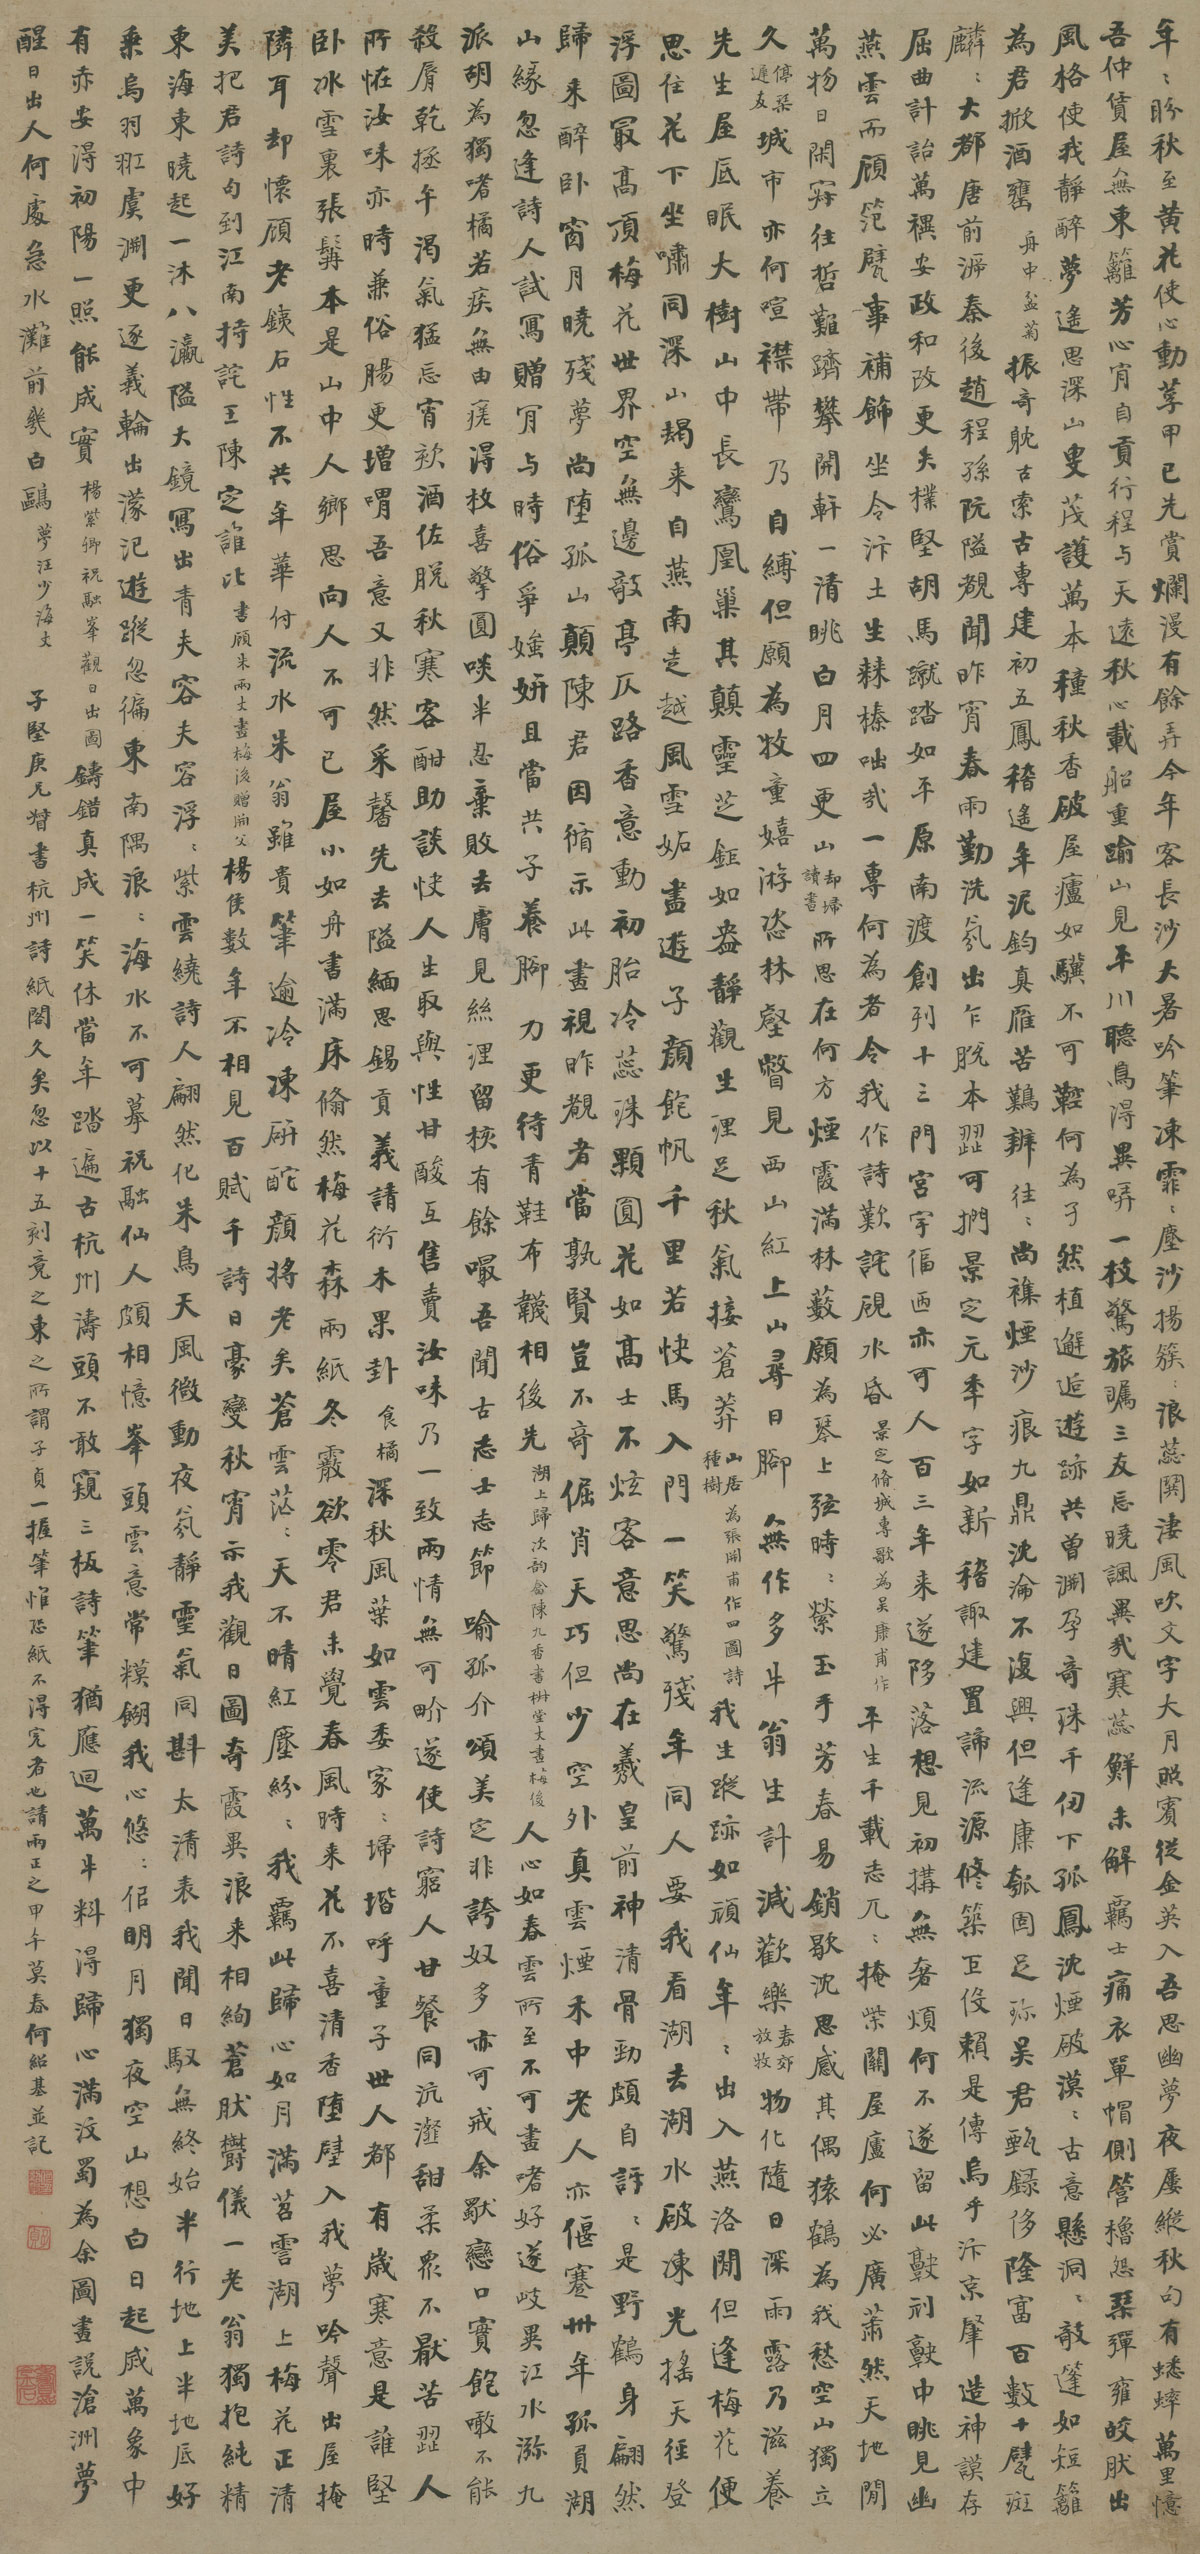 年〻盼秋至黃花使心動莩甲已先賞爛漫有餘弄今年客長沙大暑吟筆凍霏〻塵沙揚簇〻浪蕊闕淒風吹文字大月照賓從金英入吾思幽夢夜屢縱秋句有蟋蟀萬里憶
吾仲賃屋無東籬芳心宵自貢行程与天遠秋心載船重踰山見平川聽鳥得異哢一枝驚旅矚三友忘曉諷異哉寒蕊鮮未解羈士痛衣單帽側簷櫓怨琹彈雍皎肰出
風格使我靜醉夢遙思深山叟茂護萬本種秋香破屋廬如驥不可鞚何為孑然植邂逅遊跡共曾淵孕奇珠千仞下孤鳳沈煙破漠〻古意懸洞〻敲篷如短籬
為君掀酒罋 舟中盆菊 振奇躭古索古專建初五鳳稽遙年泥鈞真雁苦難辨往〻尚襍煙沙痕九鼎沈淪不復興但逢康瓠固足珎吴君甄録侈隆富百數十甓斑
麟〻大都唐前泝秦後趙程孫阮隘覩聞昨宵春雨勤洗氛出乍脫本罷可捫景定元年字如新稽諏建置諦流源修築互役賴是傳烏乎汴京肇造神謨存
屈曲計詒萬禩安政和改更失樸堅胡馬蹴踏如平原南渡創列十三門宮宇偪迫亦可人百三年来遂陊落想見初搆無奢煩何不遂留此敧刓敧中眺見幽
燕雲而顧笵甓事補飾坐令汴土生棘榛咄哉一專何為者令我作詩歎詫硯水昏 景定脩城專歌為吴康甫作 平生千載志兀〻掩柴關屋廬何必廣蕭然天地閒
萬物日閑寂往哲難躋攀開軒一清眺白月四更山 却埽讀書 所思在何方煙霞滿林藪願為琴上弦時〻縈玉手芳春易銷歇沈思感其偶猿鶴為我愁空山獨立
久 停琹遲友 城市亦何喧襟帶乃自縛但願為牧童嬉游恣林壑瞥見西山紅上山尋日腳無作多牛翁生計減歡樂 春郊放牧 物化隨日深雨露乃滋養
先生屋底眠大樹山中長鸞凰巢其顛靈芝鉅如盎靜觀生理足秋氣接蒼莽 山居種樹 為張開甫作四圖詩 我生蹤跡如頑仙年〻出入燕洛閒但逢梅花便
思住花下坐嘯同深山朅来自燕南走越風雪妬盡遊子顏飽帆千里若快馬入門一笑驚殘年同人要我看湖去湖水破凍光搖天徑登
浮圖最高頂梅花世界空無邊敲亭仄路香意動初胎冷蕊珠顆圓花如高士不炫客意思尚在羲皇前神清骨勁頗自訝〻是野鶴身翩然
歸来醉卧窗月曉殘夢尚墮孤山顛陳君因循示此畫視昨覩者當孰賢豈不奇倔肖天巧但少空外真雲煙禾中老人亦偃蹇卅年孤負湖
山緣忽逢詩人試寫贈肎与時俗爭媸妍且當共子養腳力更待青鞋布韈相後先 湖上歸次韵畣陳九香書樹堂丈畫梅後 人心如春雲所至不可畫嗜好遂歧異江水㵋九
派胡為獨嗜橘若疾無由瘥淂枚喜擎圓啖半忍棄敗去膚見絲理留核有餘嘬吾聞古志士志節喻孤介頌美定非誇奴多亦可戒余厭戀口實飽噉不能
殺脣乾拯午渴氣猛忘宵欬酒佐脫秋寒客酣助談快人生取與性甘酸互售賣汝味乃一致兩情無可畍遂使詩窮人甘餐同沆瀣甜柔眾不厭苦罷人
所怪汝味亦時兼俗腸更增喟吾意又非然采馨先去隘緬思錫貢義請衍木果卦 食橘 深秋風葉如雲委家〻埽堦呼童子世人都有歲寒意是誰堅
卧冰雪裏張髯本是山中人鄉思向人不可已屋小如舟書滿床翛然梅花森兩紙冬霰欲零君未覺春風時来花不喜清香墮壁入我夢吟聲出屋掩
隣耳却懷頋老鐵石性不共年華付流水朱翁雖貴筆逾冷凍硏酡顏將老矣蒼雲茫〻天不晴紅塵紛〻我羈此歸心如月滿苕霅湖上梅花正清
美把君詩句到江南持詫王陳定誰比 書顧朱兩丈畫梅後贈開父 楊侯數年不相見百賦千詩日豪變秋宵示我觀日圖奇霞異浪来相絢蒼肰鬱儀一老翁獨抱純精
東海東曉起一沐八瀛隘大鏡寫出青夫容夫容浮〻紫雲繞詩人翩然化朱鳥天風微動夜氛靜靈氣同斟太清表我聞日馭無終始半行地上半地底好
乘烏羽䎉虞淵更逐義輪出濛汜遊蹤忽徧東南隅浪〻海水不可摹祝融仙人頗相憶峯頭雲意常糢餬我心悠〻侶明月獨夜空山想白日起烕萬象中
有赤安淂初陽一照能成實 楊紫卿祝融峯觀日出圖 鑄錯真成一笑休當年踏遍古杭州濤頭不敢窺三板詩筆猶應迴萬牛料淂歸心滿汶蜀為余圖畫說滄洲夢
醒日出人何處急水灘前幾白鷗 夢汪少海丈 子堅庚兄督書杭州詩紙閣久矣忽以十五刻竟之東之所謂子貞一握筆惟恐紙不得完者也請兩正之甲午莫春何紹基並記